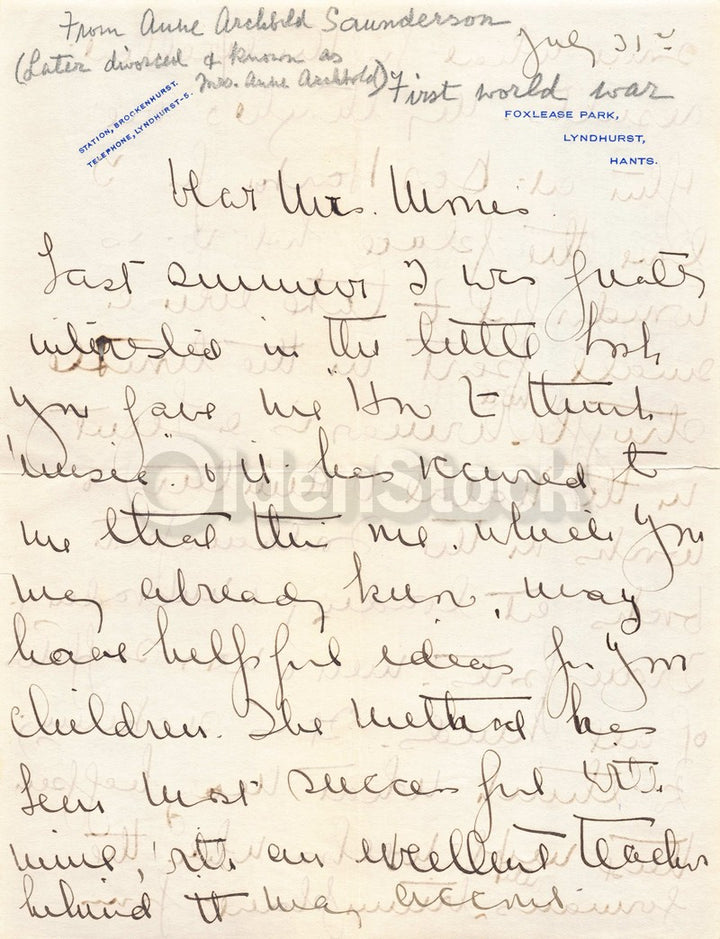 From Anne Archbold Saunderson
(Later divorced & known as
Mrs. Anne Archbold)
July 31st
First world war
STATION, BROCKENHURST.
TELEPHONE, LYNDHURST-5.
FOXLEASE PARK,
LYNDHURST,
HANTS.
Dear Mrs.
Last summer I was greatly
interested in the little book
you gave me "How to think
music". & it has occurred to
me that this one. which you
may already know, may
have helpful ideas for your
children. The method has
been most successful with
mine, with an excellent teacher
behind it may
OldenStock